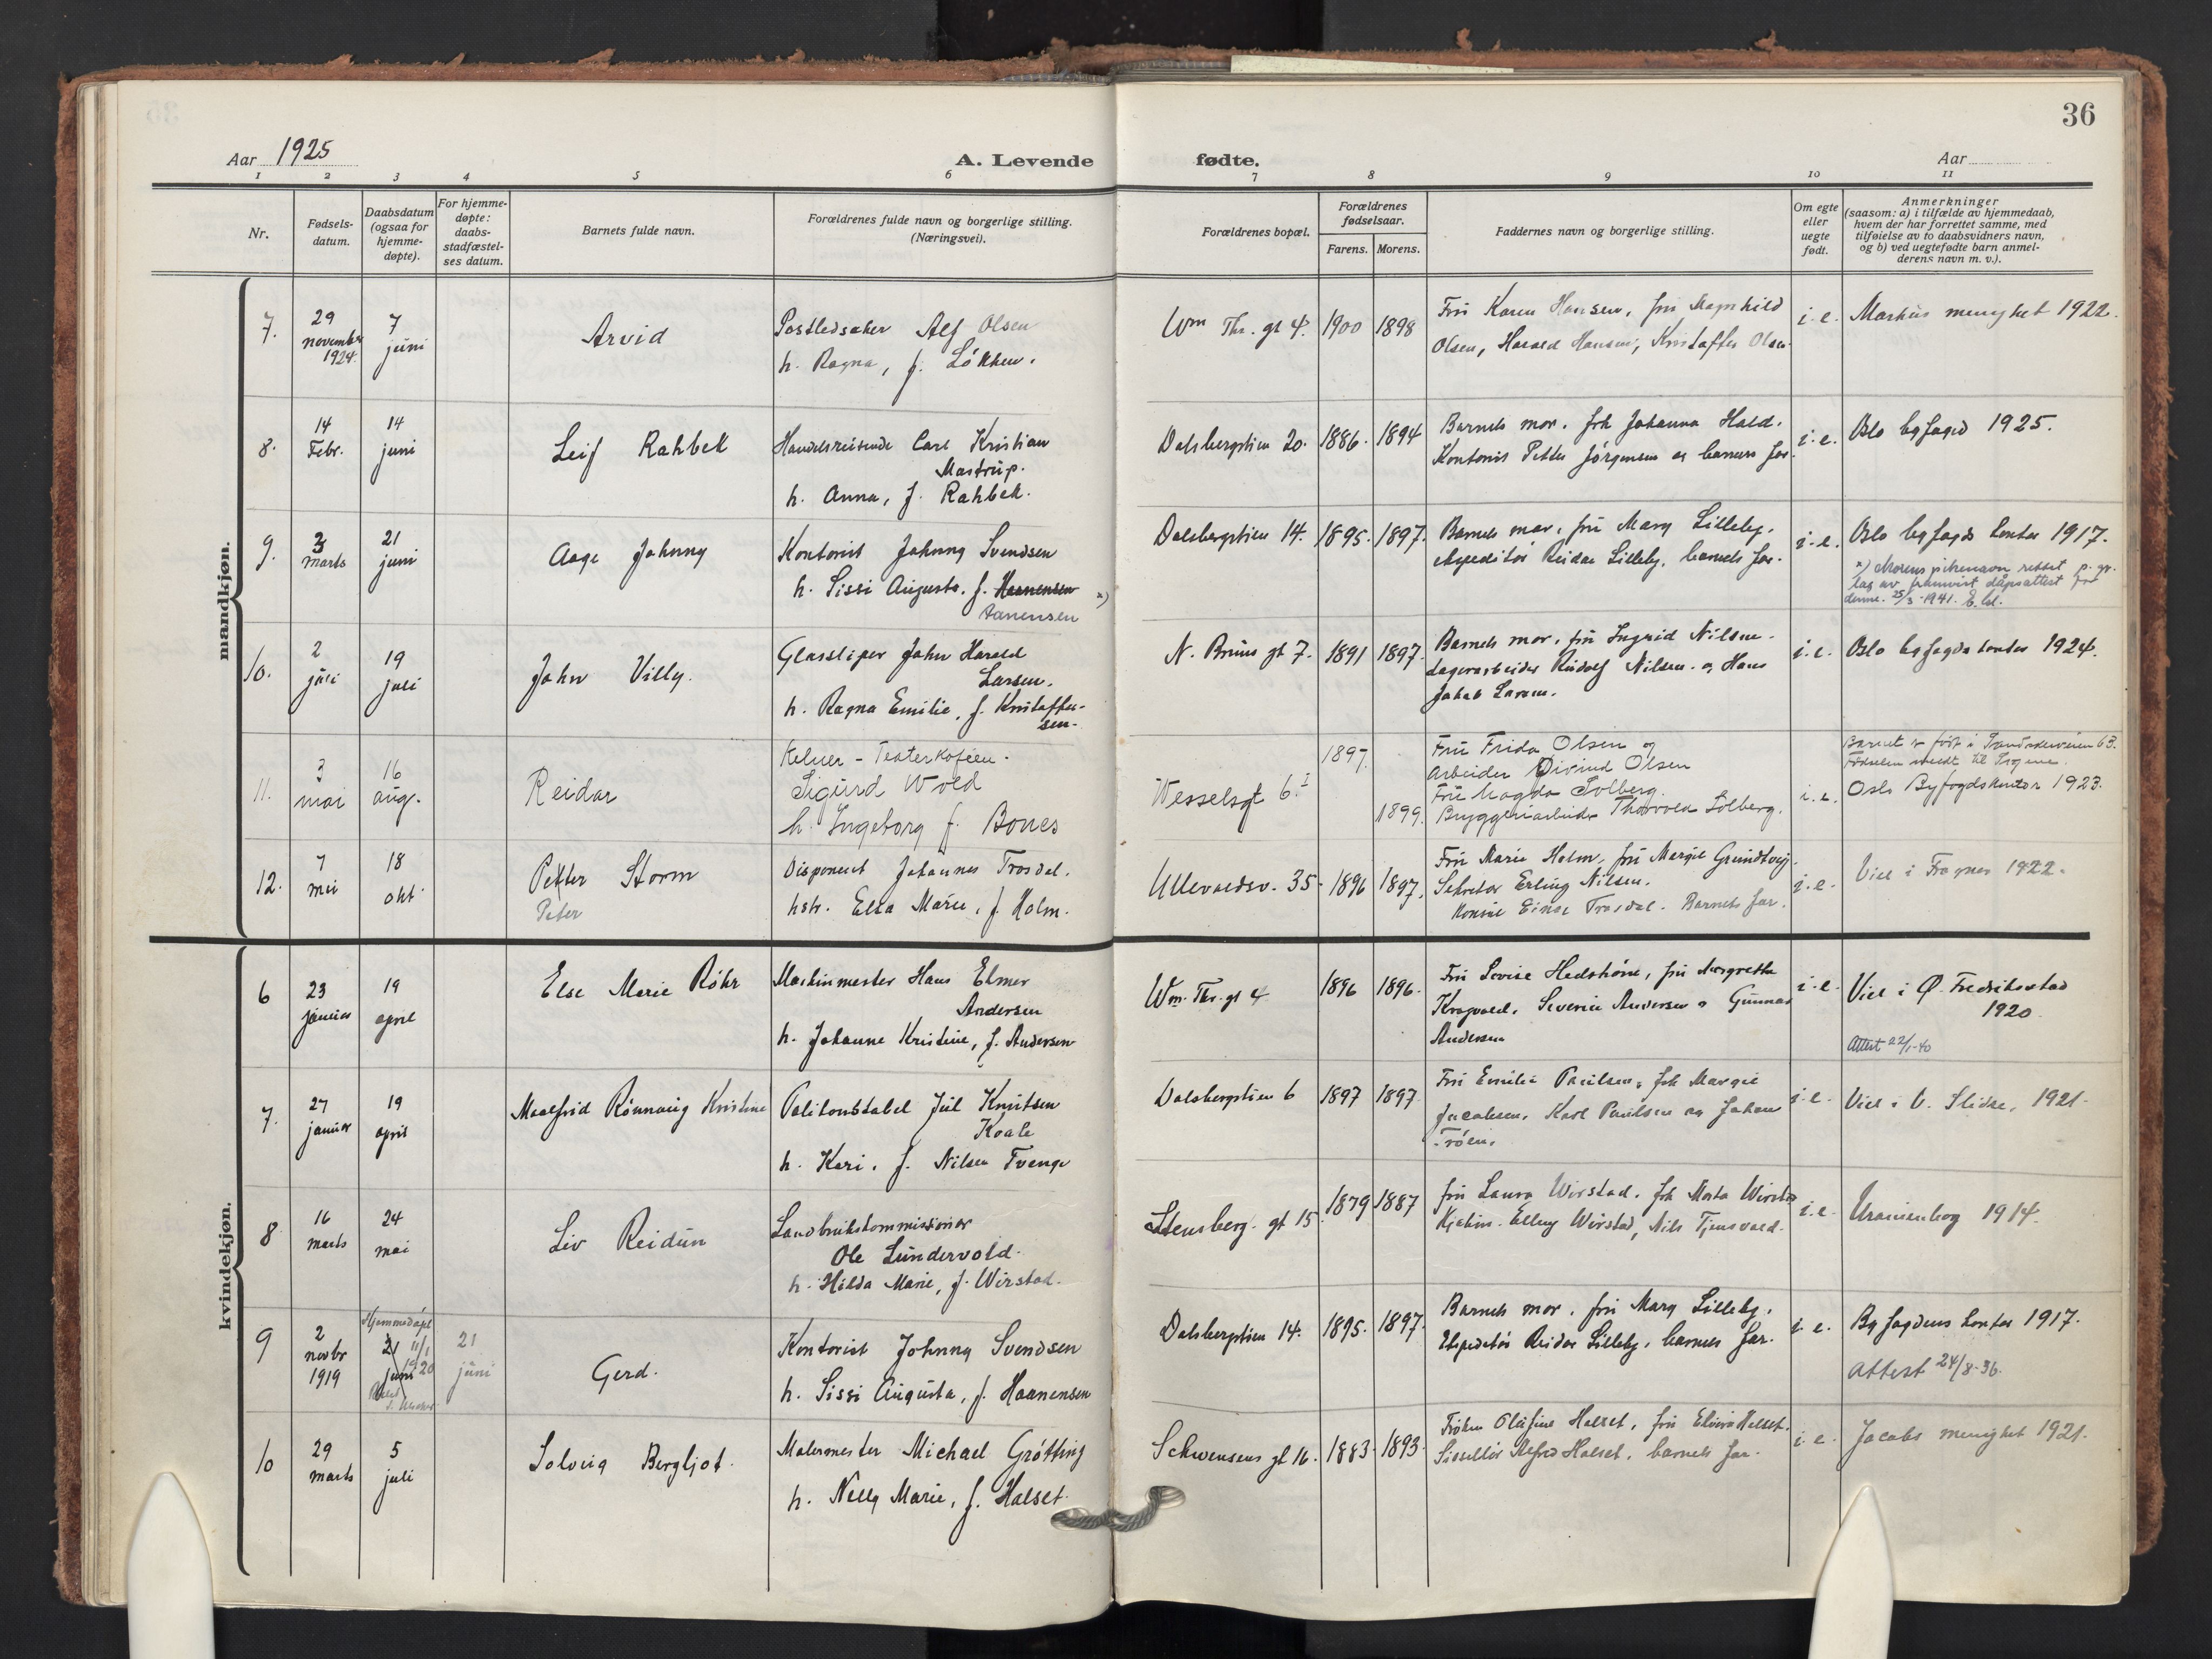 36
Aar 1925
A. Levende fødte.
Aar
1 2 3 4 5 6 7 8 9 10 11
Nr.
Fødsels-
datum.
Daabsdatum
(ogsaa for
hjemme-
døpte).
For hjemme-
døpte:
daabs-
stadfæstel-
ses datum.
Barnets fulde navn.
Forældrenes fulde navn og borgerlige stilling.
(Næringsvei).
Forældrenes bopæl.
Forældrenes
fødselsaar.
Farens. Morens.
Faddernes navn og borgerlige stilling.
Om egte
eller
uegte
født.
Anmerkninger
(saasom: a) i tilfælde av hjemmedaab,
hvem der har forrettet samme, med
tilføielse av to daabsvidners navn,
og b) ved uegtefødte barn anmel-
derens navn m. v.).
mandkjøn.
7.
29
november
1924.
7
juni
Arvid
Postbedsøker Alf Olsen
h. Ragna, f. Løkken.
Wm Thr. gt 4.
1900
1898
Fru Karen Hansen, fru Magnhild
Olsen, Harald Hansen, Kristoffer Olsen
i.e.
Markus menighet 1922.
8.
14
Febr.
14
juni
Leif Rahbek
Handelsreisende Carl Kristian
Mastrup.
h. Anna, f. Rahbek.
Dalsbergstien 20.
1886.
1894
Barnets mor, frk Johanna Hald.
Kontorist Petter Jörgensen og barnets far.
i.e.
Oslo byfoged 1925.
9.
3
marts
21
juni
Aage Johnny
Kontorist Johnny Svendsen
h. Sissi Augusta, f. Haanensen x)
Aanensen
Dalsbergstien 14.
1895.
1897.
Barnets mor, fru Mary Lilleby.
Ekspeditør Reidar Lilleby, barnets far.
i.e.
Oslo byfogds kontor 1917.
x) Morens pikenavn rettet p. gr.
lag av fremvist dåpsattest for
denne. 25/3-1941.
10.
2
juli
19
juli
John Villy.
Glassliper John Harald
Larsen.
h. Ragna Emilie, f. Kristoffer-
sen.
N. Bruns gt 7.
1891
1897.
Barnets mor, fru Ingrid Nilsen.
Lagerarbeider Rudolf Nilsen og Hans
Jakob Larsen.
i.e.
Oslo byfogds kontor 1924.
11.
3
mai
16
aug.
Reidar
Kelner - Teaterkafeen.
Sigurd Wold
h. Ingeborg f. Bones
Wesselsgt 6.I
1897.
1899.
Fru Frida Olsen og
Arbeider Øivind Olsen
Fru Magda Solberg.
Bryggeriarbeider Thorvald Solberg.
i.e.
Barnet er født i Trondhjemsveien 63.
Fødselen meldt til
Oslo Byfogdskontor 1923.
12.
7
mai
18
okt.
Petter Storm
Peter
Disponent Johannes Trosdal.
hstr. Elsa Marie, f. Holm.
Ullevaalsv. 35.
1896
1897.
Fru Marie Holm, fru Margit Grundtvig.
Sekretær Erling Nilsen.
Konsul Einar Trosdal. Barnets far.
i.e.
Viet i Frogner 1922.
kvindekjøn.
6
23
januar
19
april
Else Marie Röhr
Maskinmester Hans Elmer
Andersen
h. Johanne Kristine, f. Andersen
Wm. Thr. gt 4
1896
1896.
Fru Lovise Hedströme, fru Margrethe
Kragvald, Severin Andersen og Gunnar
Andersen
i.e.
Viet i Ø. Fredrikstad
1920
Attest 22/1-40
7.
27
januar
19
april
Maalfrid Rönnaug Kristine
Politonstabel Juul Knutsen
Kvale
h. Kari, f. Nilsen Tvenge
Dalsbergstien 6
1897
1897
Fru Emilie Paulsen, frk Margit
Jacobsen, Karl Paulsen og Johan
Trøen.
i.e.
Viet i V. Slidre, 1921.
8
16
marts
24
mai
Liv Reidun
Landbrukskommissionær
Ole Lundervold.
h. Hilda Marie, f. Wirstad.
Stensberg. gt 15.
1879
1887
Fru Laura Wirstad. frk Marta Wirstad
Kjøbm. Elling Wirstad, Nils Tjensvold.
i.e.
Uranienborg 1914.
9
2
novbr
1919
Hjemmedøpt
21 11/1
juni 1920
21
juni
Gerd.
Kontorist Johnny Svendsen
h. Sissi Augusta, f. Haanensen
Dalsbergstien 14.
1895.
1897.
Barnets mor, fru Mary Lilleby.
Ekspeditør Reidar Lilleby, barnets far.
i.e.
Byfogdens kontor 1917.
Attest 24/8-36.
10
29
marts
5
juli
Solveig Bergljot.
Malermester Michael Grötting
h. Nelly Marie, f. Halset.
Schwensens gt 16.
1883.
1893.
Frøken Olufine Halset, fru Elvira Halset.
Alfred Halset, barnets far.
i.e.
Jacobs menighet 1921.